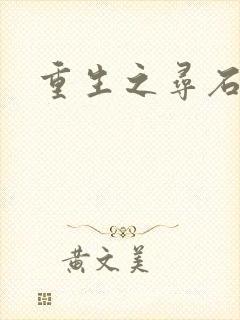 重生之寻石
黄文美